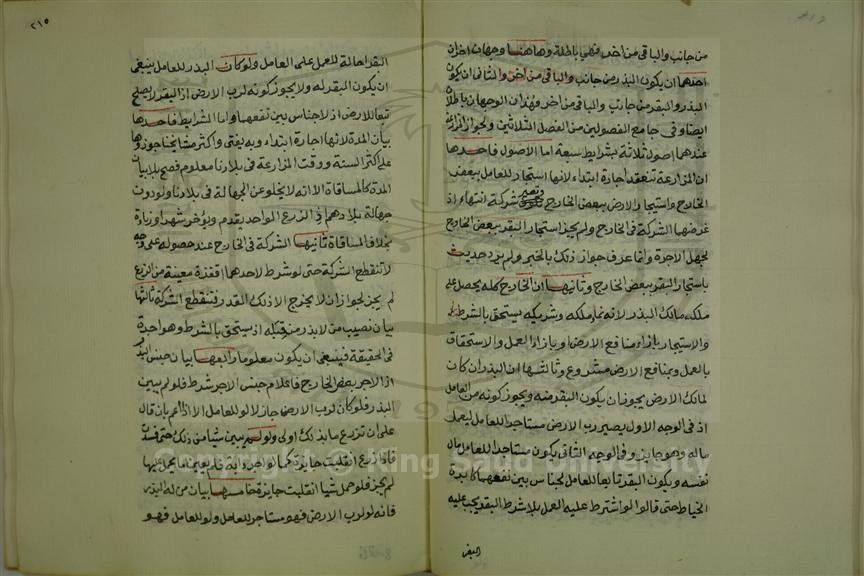 من جانب والباقي من اخر فهي باطلة وهاهنا وجهان اخران
احدهما ان يكون البذر من جانب والباقي من اخر والثاني ان يكون
البذر والبقر من جانب والباقي من اخر وهذان الوجهان باطلان
ايضا وفي جامع الفصولين من الفصل الثلاثين ولجواز المزارعة
عندهما اصول ثلاثة بشرايط سبعة اما الاصول فاحدها
ان المزارعة تنعقد اجارة ابتداء لانها استيجار للعامل ببعض
الخارج واستيجار الارض ببعض الخارج وتصير شركة انتهاء اذ
غرضهما الشركة في الخارج ولم يجز استيجار البقر ببعض الخارج
لجهل الاجرة وانما عرف جواز ذلك بالخبر ولم يرد حديث
باستيجار البقر ببعض الخارج وثانيها ان الخارج كله يحصل على
ملك مالك البذر لانه نماء ملكه وشريكه يستحق بالشرط
والاستيجار بازاء منافع الارض او بازاء العمل والاستحقاق
بالعمل وبمنافع الارض مشروع وثالثها ان البذر ان كان
لمالك الارض يجوز ان يكون البقر منه ويجوز كونه من العامل
اذ في الوجه الاول يصير رب الارض مستاجرا للعامل ليعمل
ماله وهو جايز وفي الوجه الثاني يكون مستاجرا للعامل مال
نفسه ويكون البقر تابعا للعامل لجناس بين نفعهما كابرة
الخياط حتى قالوا لو اشترط عليه العمل بلا شرط البقر يجب عليه
البقر
٢١٥
البقر احالة للعمل على العامل ولو كان البذر للعامل ينبغي
ان يكون البقر له ولا يجوز كونه لرب الارض اذ البقر لا يصلح
تبعا للارض اذ لاجناس بين نفعهما واما الشرايط فاحدها
بيان المدة لانها اجارة ابتداء وبه يفتى واكثر مشايخنا جوزوها
على اكثر السنة ووقت المزارعة في بلادنا معلوم فصح بلا بيان
المدة كالمساقاة الا انه لا يخلو عن الجهالة في بلادنا ولو دون
جهالة بلادهم اذ الزرع الواحد يقدم ويؤخر شهرا وزيادة
بخلاف المساقاة ثانيها الشركة في الخارج عند حصوله على وجه
لا تنقطع الشركة حتى لو شرط لاحدهما اقفزة معينة من الزرع
لم يجز لجواز ان لا يخرج الا ذلك القدر فتنقطع الشركة ثالثها
بيان نصيب من لا بذر من قبله اذ يستحق بالشرط وهو اجرة
في الحقيقة فينبغي ان يكون معلوما رابعها بيان جنس البذر
اذ الاجر بعض الخارج فاعلام جنس الاجر شرط فلو لم يبين
البذر فلو كان لرب الارض جاز لا لو للعامل الا اذا عم بان قال
على ان تزرع ما بدا لك اولى ولو لم يبين شيا من ذلك حتى فسدت
فاذا زرع انقلبت جايزة كما لو اجر دابة فلم يعين ما يحمل عليها
لم يجز فلو حمل شيا انقلبت جايزة خامسها بيان من له البذر
فانه لو لرب الارض فهو مستاجر للعامل ولو للعامل فهو
Copyright © King Saud University